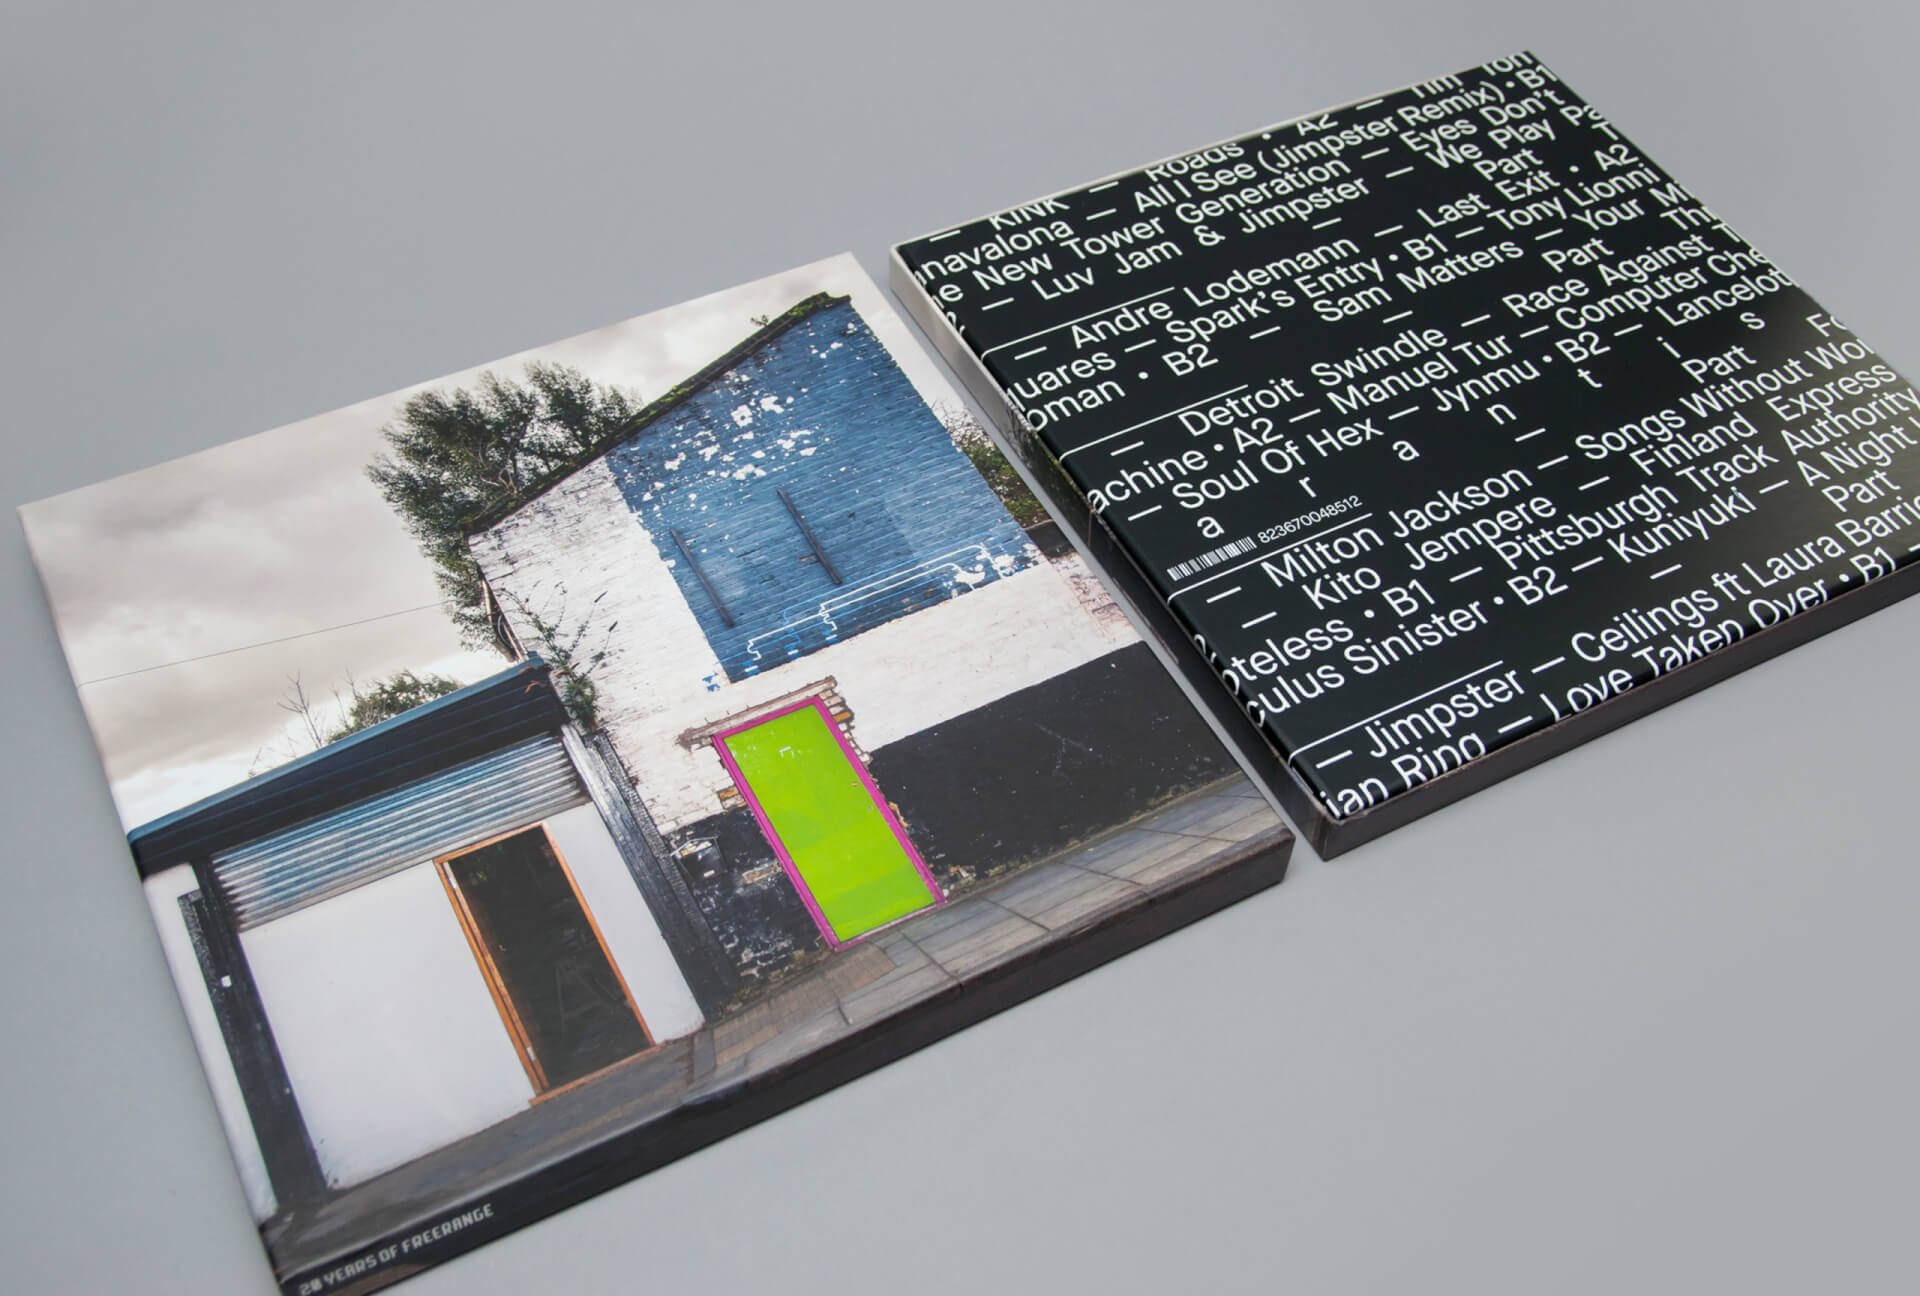 20 YEARS OF FREERANGE
— KiNK — Roads • A2 — Tim
navalona — All I See (Jimpster Remix) • B1
New Tower Generation — Eyes Don't
— Luv Jam & Jimpster — We Play
— Part
— Andre Lodemann — Last Exit • A2
uares — Spark's Entry • B1 — Tony Lionni
oman • B2 — Sam Matters — Your
— Part
— Detroit Swindle — Race Against
achine • A2 — Manuel Tur — Computer
— Soul Of Hex — Jynmu • B2 — Lancelot
a r a n t i s
— Part
823670048512
— Milton Jackson — Songs Without
— Kito Jempere — Finland Express
oteless • B1 — Pittsburgh Track Authority
culus Sinister • B2 — Kuniyuki — A Night
— Part
— Jimpster — Ceilings ft Laura
ian Ring — Love Taken Over • B1